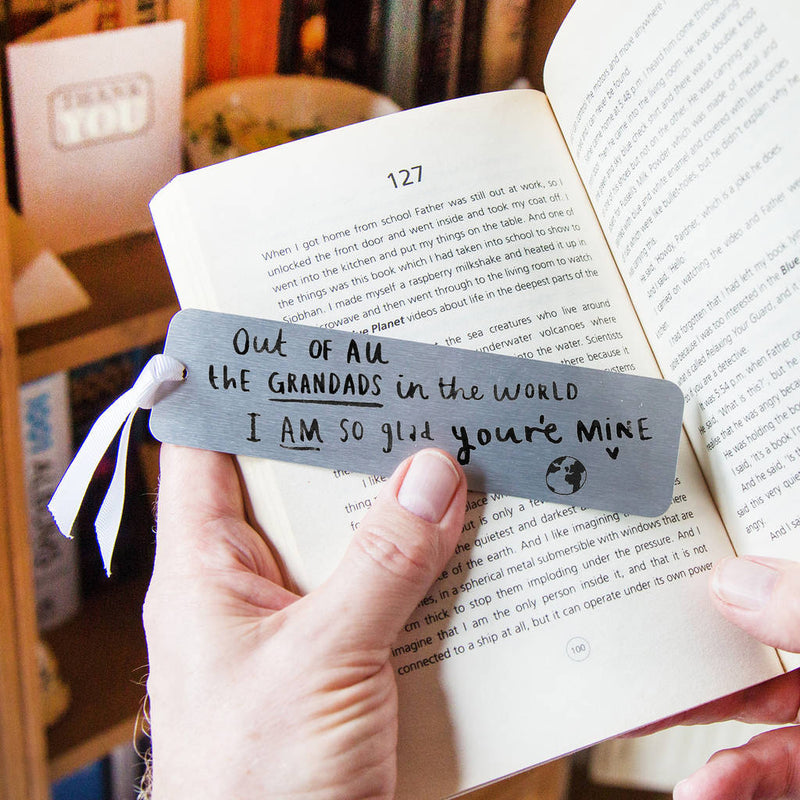 THANK
YOU
127
When I got home from school Father was still out at work, so I
unlocked the front door and went inside and took my coat off. I
went into the kitchen and put my things on the table. And one of
the things was this book which I had taken into school to show to
Siobhan. I made myself a raspberry milkshake and heated it up in
microwave and then went through to the living room to watch
Planet videos about life in the deepest parts of the
the sea creatures who live around
underwater volcanoes where
into the water. Scientists
there because it
systems
Out OF All
the GRANDADS in the WORLD
I AM SO glad you're MINE
I like
but is only a few
the quietest and darkest
of the earth. And I like imagining
in a spherical metal submersible with windows that are
cm thick to stop them imploding under the pressure. And I
imagine that I am the only person inside it, and that it is not
connected to a ship at all, but it can operate under its own power
100
control the motors and move anywhere
and can never be found.
came home at 5:48 p.m. I heard him come through
Then he came into the living room. He was wearing
and sky blue check shirt and there was a double knot
his shoes but not on the other. He was carrying an old
Milk Powder which was made of metal and
blue and white enamel and covered with little circles
which were like bullet-holes, but he didn't explain why he
was carrying this.
He said, 'Howdy, Pardner,' which is a joke he does.
And I said, 'Hello.'
I carried on watching the video and Father went
kitchen.
I had forgotten that I had left my book lying
because I was too interested in the Blue
is called Relaxing Your Guard, and it
if you are a detective.
It was 5:54 p.m. when Father
said, 'What is this?', but he
realise that he was angry because
He was holding the book
I said, 'It's a book
And he said, 'Is
said this very quietly
angry.
And I said